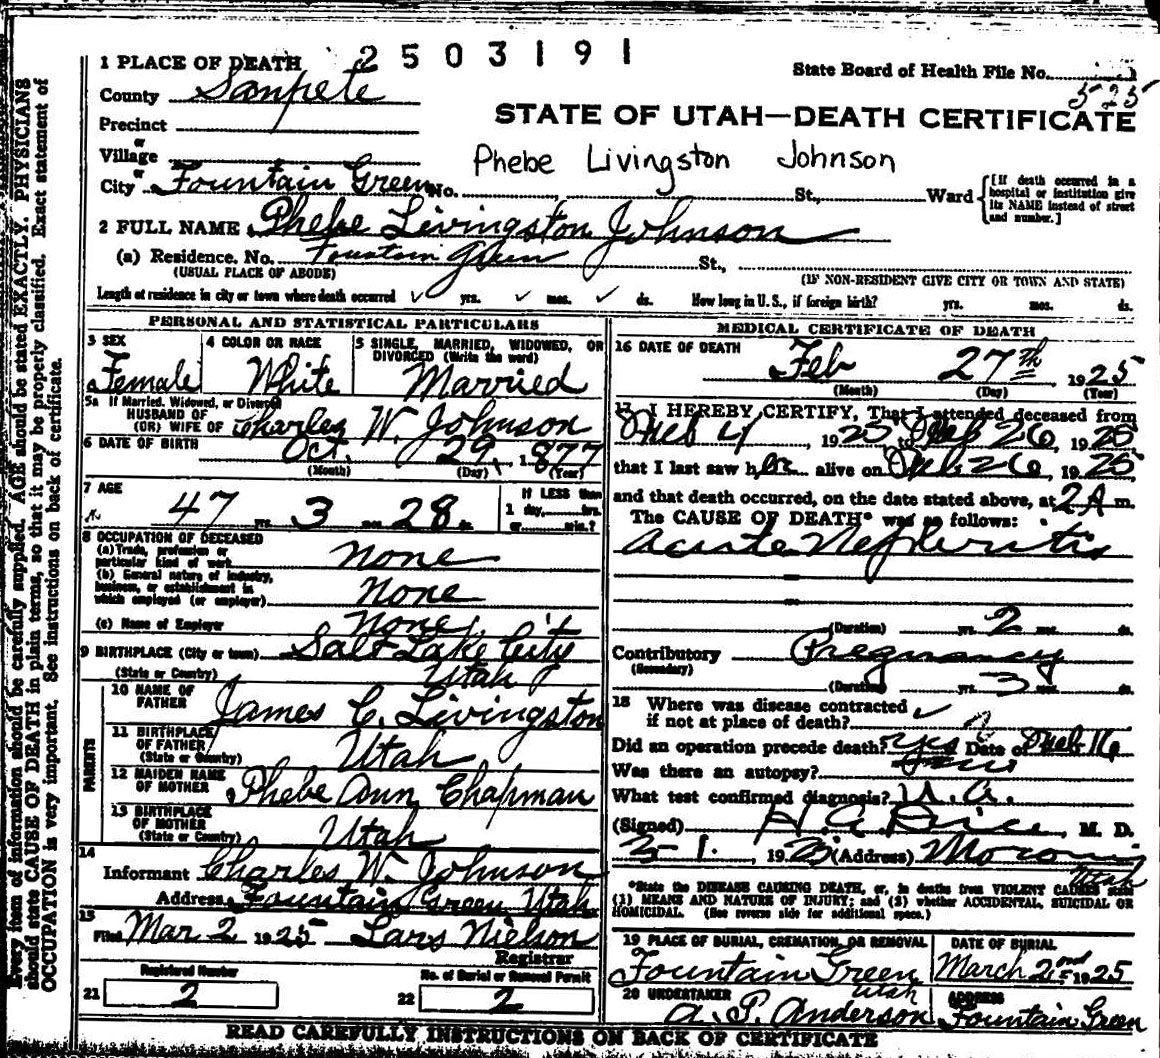 2503191
1 PLACE OF DEATH
State Board of Health File No. 525
County Sanpete
STATE OF UTAH—DEATH CERTIFICATE
Precinct
or
Village
Phebe Livingston Johnson
or
City Fountain Green No. St., Ward
[If death occurred in a hospital or institution give its NAME instead of street and number.]
2 FULL NAME Phebe Livingston Johnson
(a) Residence. No. Fountain Green St.,
(USUAL PLACE OF ABODE) (IF NON-RESIDENT GIVE CITY OR TOWN AND STATE)
Length of residence in city or town where death occurred yrs. mos. ds. How long in U.S., if foreign birth? yrs. mos. ds.
PERSONAL AND STATISTICAL PARTICULARS
3 SEX Female
4 COLOR OR RACE White
5 SINGLE, MARRIED, WIDOWED, OR DIVORCED (Write the word) Married
5a If Married, Widowed, or Divorced
HUSBAND OF
(OR) WIFE OF Charles W. Johnson
6 DATE OF BIRTH Oct. 29, 1877
(Month) (Day) (Year)
7 AGE 47 yrs. 3 mos. 28 ds.
If LESS than
1 day, hrs.
or min.?
8 OCCUPATION OF DECEASED
(a) Trade, profession or
particular kind of work None
(b) General nature of industry,
business, or establishment in
which employed (or employer) None
(c) Name of Employer None
9 BIRTHPLACE (City or town) Salt Lake City
(State or Country) Utah
PARENTS
10 NAME OF
FATHER James C. Livingston
11 BIRTHPLACE
OF FATHER
(State or Country) Utah
12 MAIDEN NAME
OF MOTHER Phebe Ann Chapman
13 BIRTHPLACE
OF MOTHER
(State or Country) Utah
14
Informant Charles W. Johnson
Address Fountain Green Utah
15
Filed Mar 2 1925 Lars Nielson
Registrar
Registered Number
21 2
No. of Burial or Removal Permit
22 2
MEDICAL CERTIFICATE OF DEATH
16 DATE OF DEATH
Feb 27th 1925
(Month) (Day) (Year)
17 I HEREBY CERTIFY, That I attended deceased from
Feb 4, 1925 to Feb 26, 1925
that I last saw her alive on Feb 26, 1925
and that death occurred, on the date stated above, at 2 A m.
The CAUSE OF DEATH* was as follows:
Acute Nephritis
(Duration) yrs. 2 mos. ds.
Contributory Pregnancy
(Secondary)
(Duration) yrs. 3 mos. ds.
18 Where was disease contracted
if not at place of death?
Did an operation precede death? yes Date of Feb 16
Was there an autopsy?
What test confirmed diagnosis? U. A.
(Signed) , M. D.
3-1, 1925 (Address) Moroni
Utah
*State the DISEASE CAUSING DEATH, or, in deaths from VIOLENT CAUSES state
(1) MEANS AND NATURE OF INJURY; and (2) whether ACCIDENTAL, SUICIDAL OR
HOMICIDAL. (See reverse side for additional space.)
19 PLACE OF BURIAL, CREMATION, OR REMOVAL
Fountain Green
Utah
DATE OF BURIAL
March 2nd 1925
20 UNDERTAKER
A. P. Anderson
ADDRESS
Fountain Green
READ CAREFULLY INSTRUCTIONS ON BACK OF CERTIFICATE
Every item of information should be carefully supplied. AGE should be stated EXACTLY. PHYSICIANS
should state CAUSE OF DEATH in plain terms, so that it may be properly classified. Exact statement of
OCCUPATION is very important. See instructions on back of certificate.